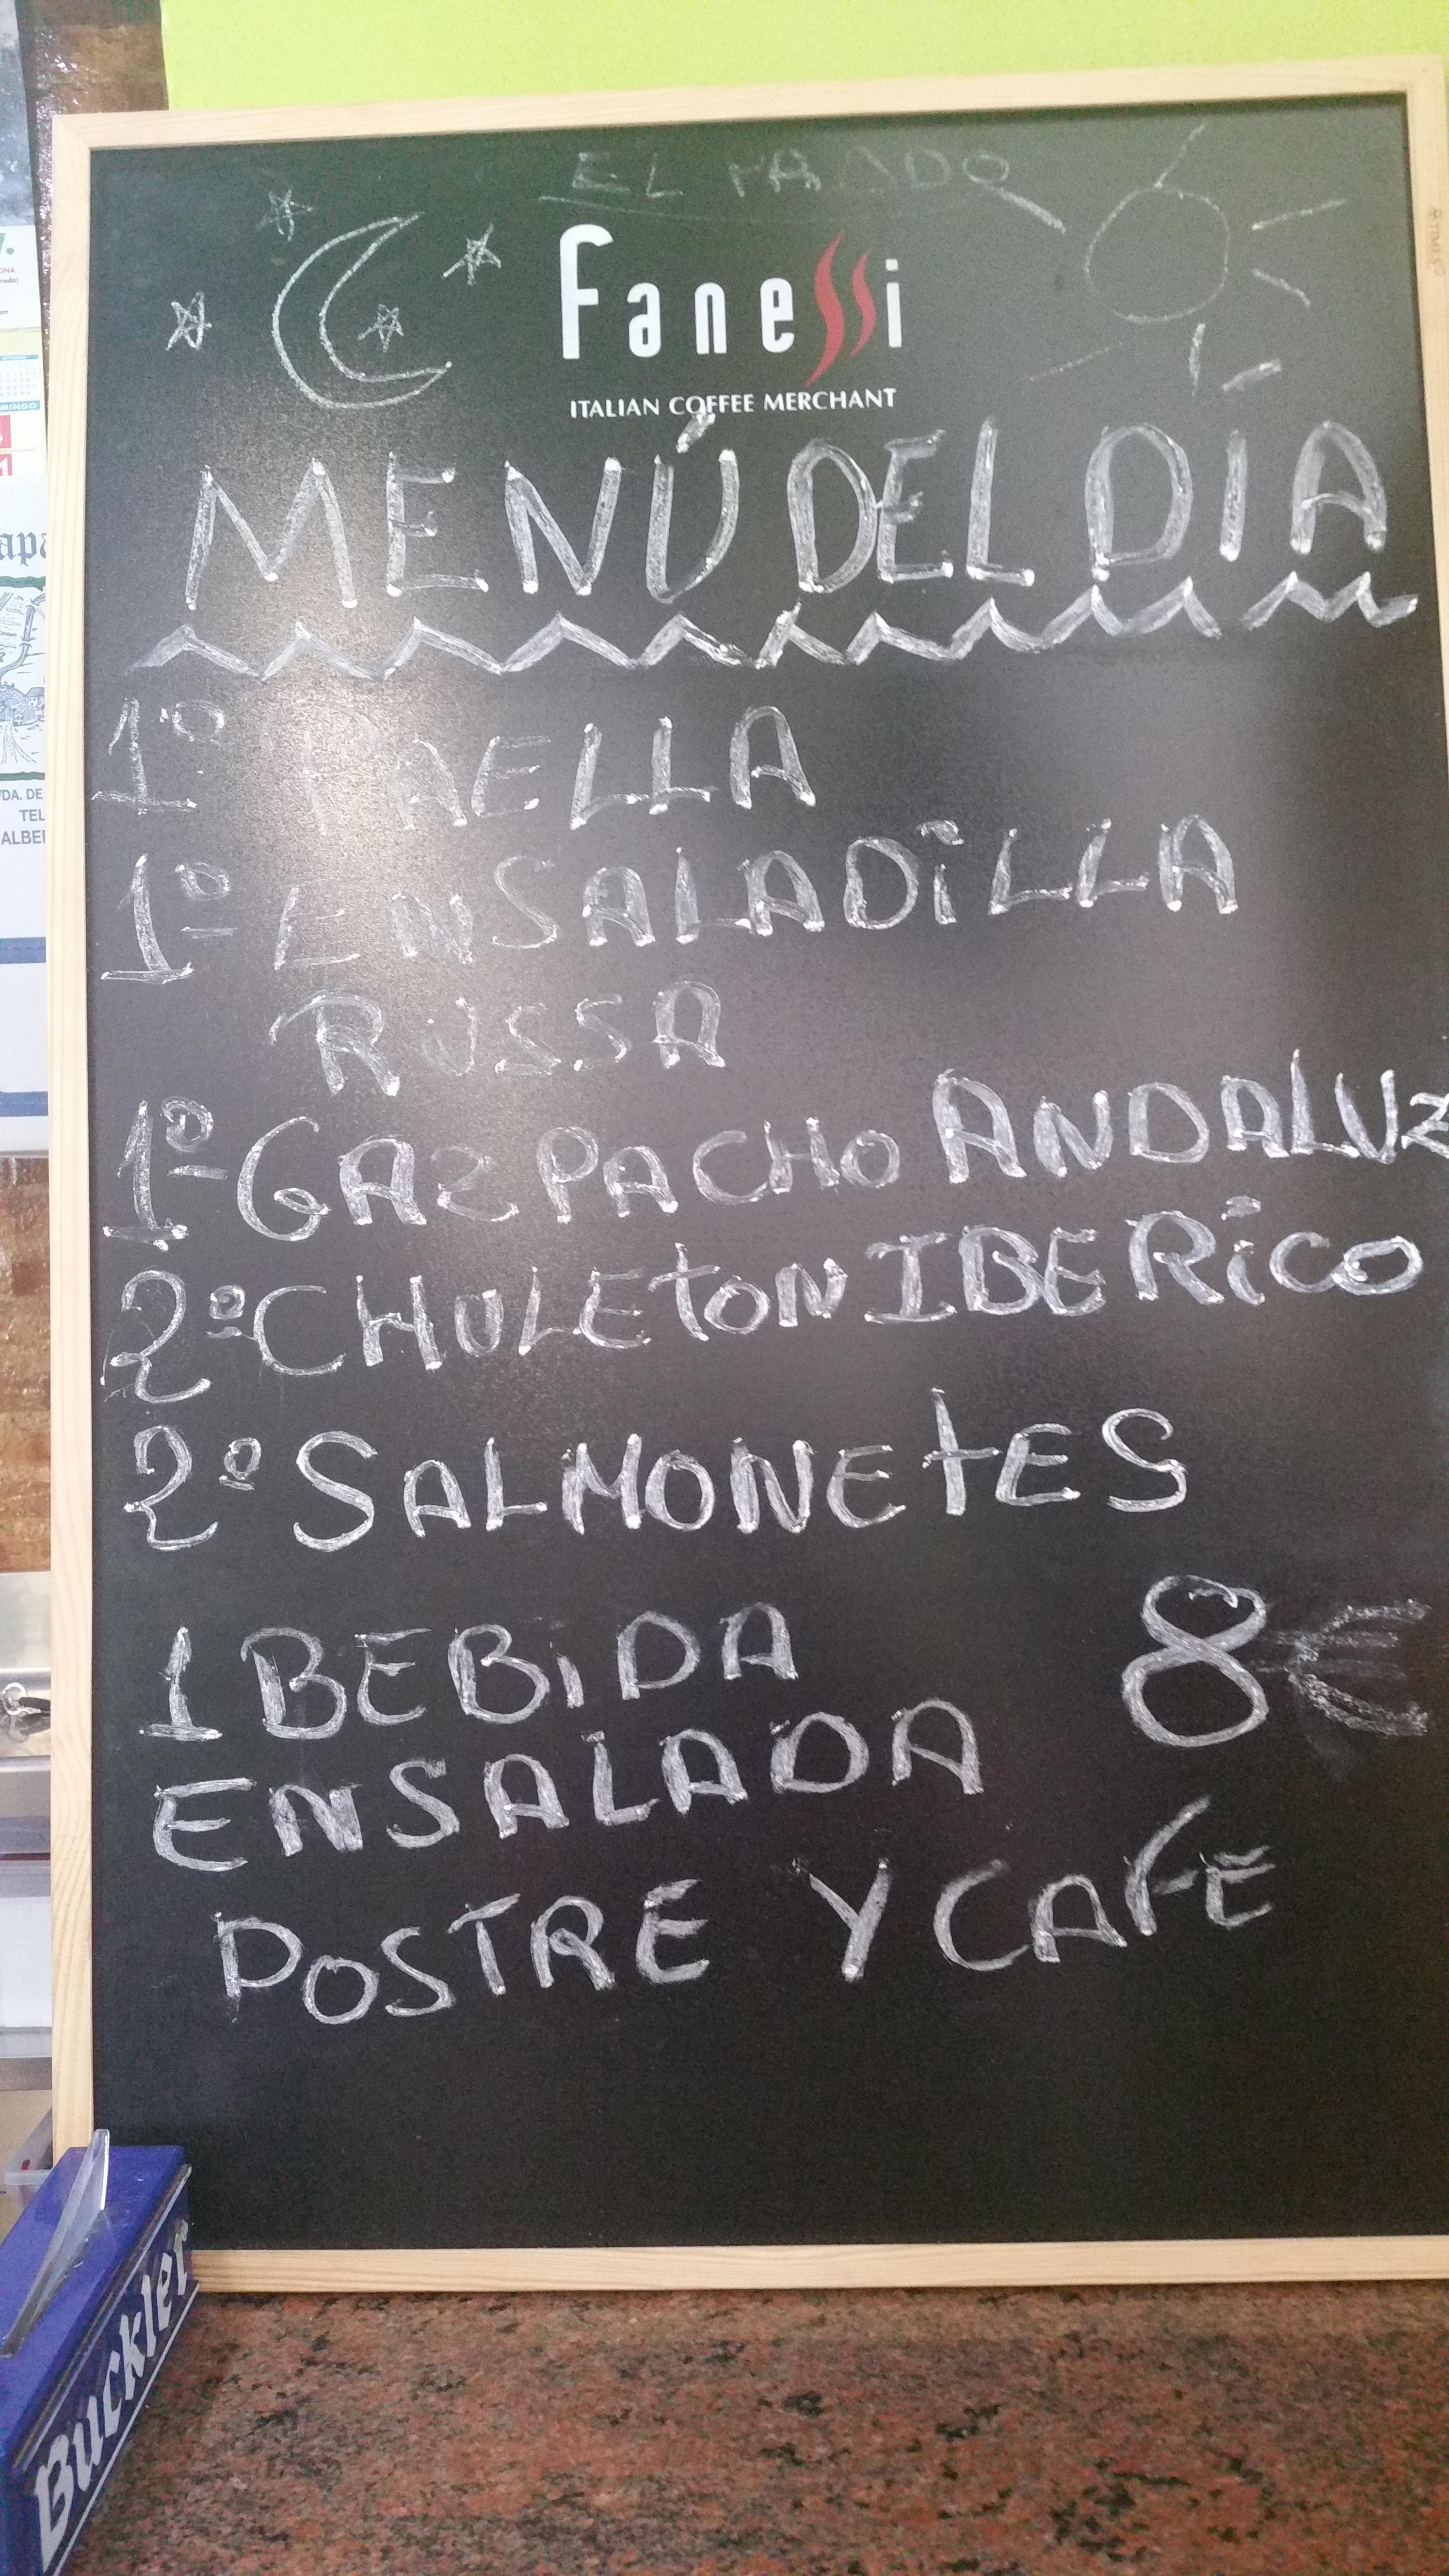 EL PRADO
Fanessi
ITALIAN COFFEE MERCHANT
MENÚ DEL DÍA
1º PAELLA
1º ENSALADILLA
RUSSA
1º GAZPACHO ANDALUZ
2º CHULETON IBERICO
2º SALMONETES
1 BEBIDA
8€
ENSALADA
POSTRE Y CAFE
Buckler
TEL